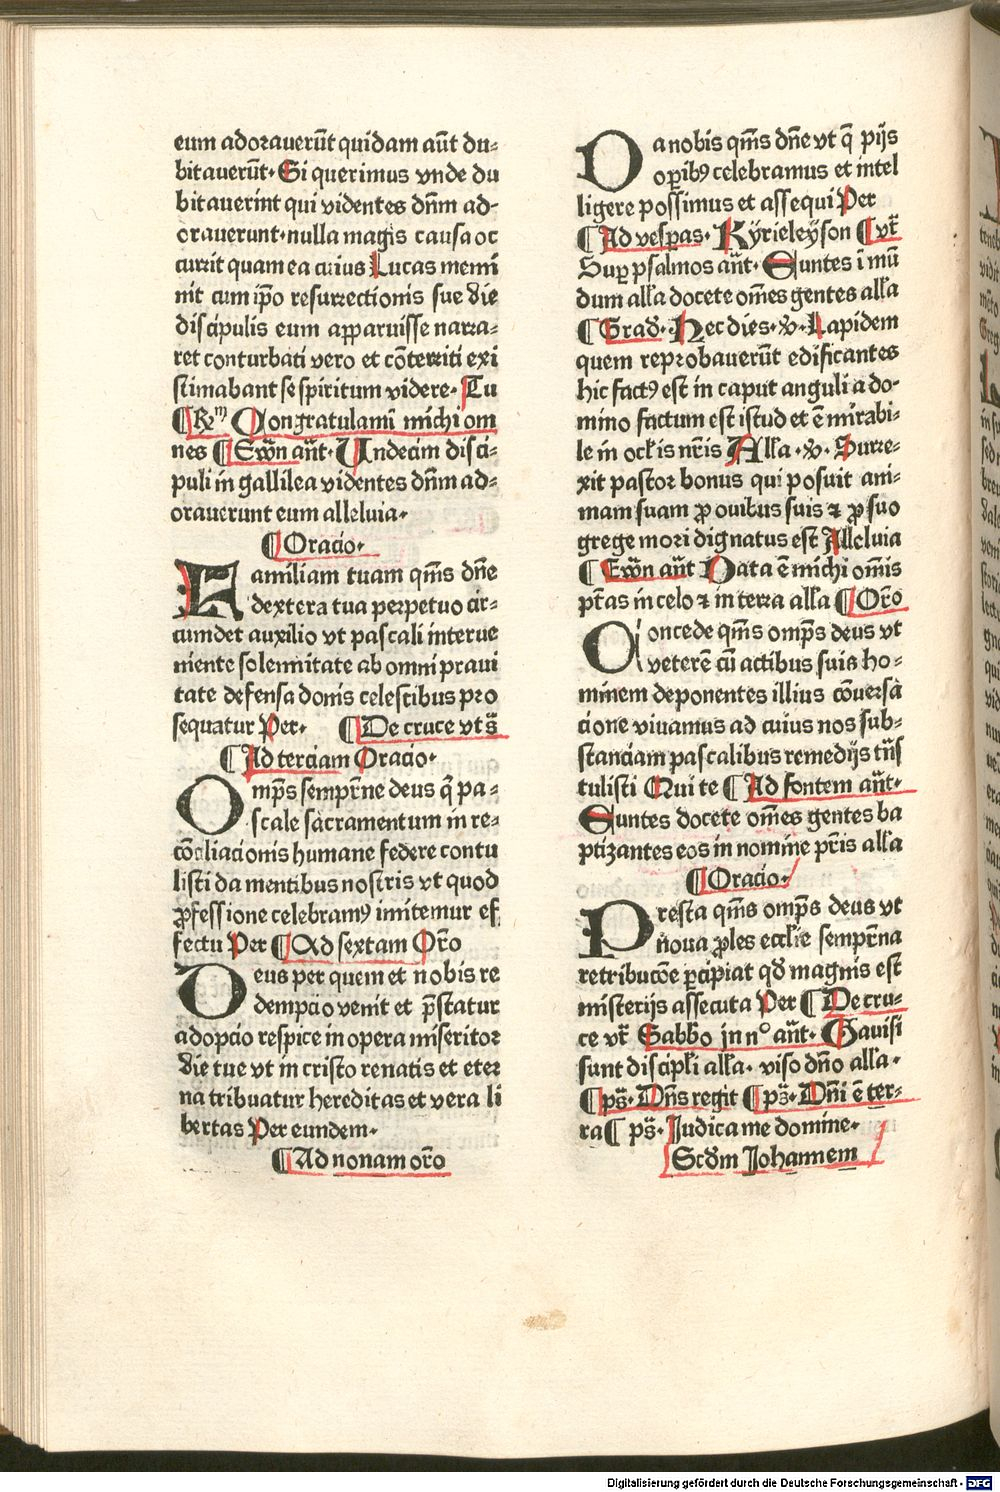 eum adorauerūt quidam aūt du-
bitauerūt. Si querimus vnde du
bitauerint qui videntes dn̄m ad-
orauerunt. nulla magis causa oc
currit quam ea cuius Lucas memi
nit cum ip̄o resurrectionis sue die
discipulis eum apparuisse narra-
ret conturbati vero et cōterriti exi
stimabant se spiritum videre. Tu
¶ Rm Congratulamī michi om
nes ¶ Ewn̄ an̄t. Undecim disci-
puli in gallilea videntes dn̄m ad-
orauerunt eum alleluia.
¶ Oracio.
Familiam tuam qm̄s dn̄e
dextera tua perpetuo cir-
cumdet auxilio vt pascali interue
niente solennitate ab omni praui
tate defensa donis celestibus pro
sequatur Per. ¶ De cruce vt s̄
¶ Ad terciam Oracio.
Omp̄s semprn̄e deus q̄ pa-
scale sacramentum in re-
cōciliacionis humane federe contu
listi da mentibus nostris vt quod
ꝓfessione celebramꝰ imitemur ef
fectu Per ¶ Ad sextam Orō
Deus per quem et nobis re
dempcio venit et p̄statur
adopcio respice in opera misericor
die tue vt in cristo renatis et eter
na tribuatur hereditas et vera li
bertas Per eundem.
¶ Ad nonam orō
Da nobis qm̄s dn̄e vt q̄ pijs
oꝑibꝰ celebramus et intel
ligere possimus et assequi Per
¶ Ad vesꝑas. Kyrieleyson ¶ vt̄
Suꝑ psalmos an̄t. Euntes ī mū
dum all̄a docete om̄es gentes all̄a
¶ Grad̄. Hec dies. v̄. Lapidem
quem reprobauerūt edificantes
hic factꝰ est in caput anguli a do-
mino factum est istud et ē mirabi-
le in oc̄lis nr̄is Alla. v̄. Surre-
xit pastor bonus qui posuit ani-
mam suam ꝓ ouibus suis ⁊ ꝓ suo
grege mori dignatus est Alleluia
¶ Ewn̄ an̄t Data ē michi om̄is
pt̄as in celo ⁊ in terra all̄a ¶ Orō
Concede qm̄s omp̄s deus vt
veterē cū actibus suis ho-
minem deponentes illius cōuersa
cione viuamus ad cuius nos sub-
stanciam pascalibus remedijs trn̄s
tulisti Qui te ¶ Ad fontem an̄t.
Euntes docete om̄es gentes ba
ptizantes eos in nomine pr̄is all̄a
¶ Oracio.
Presta qm̄s omp̄s deus vt
noua ꝓles ecclīe semprn̄a
retribucōe ꝑcipiat qd̄ magnis est
misterijs assecuta Per ¶ De cru-
ce vt̄ Sabbō in nº an̄t. Gauisi
sunt discipl̄i all̄a. viso dn̄o all̄a.
¶ ps̄. Dn̄s regit ¶ ps̄. Dn̄i ē ter-
ra ¶ ps̄. Judica me domine.
Scd̄m Johannem
Digitalisierung gefördert durch die Deutsche Forschungsgemeinschaft - DFG